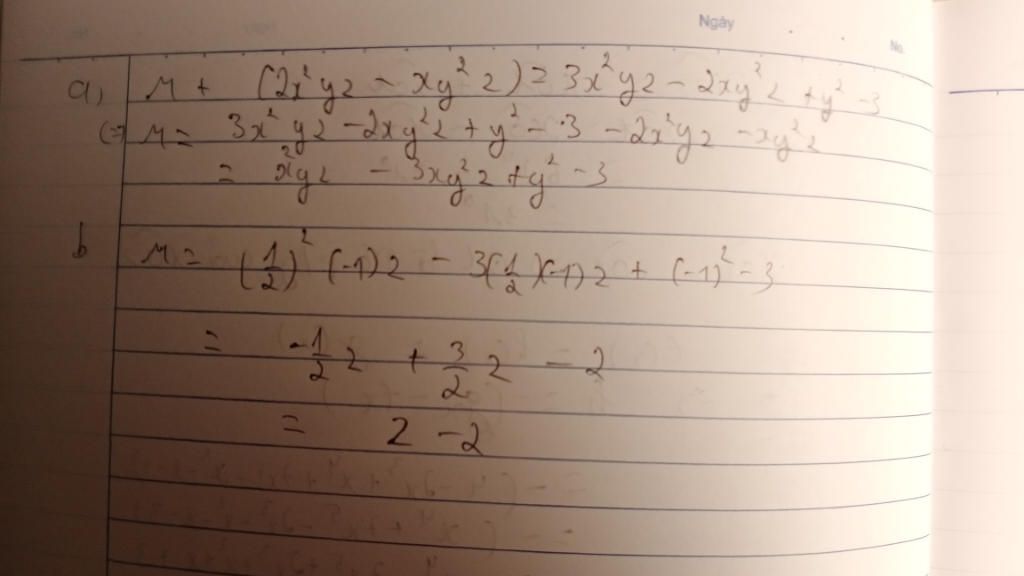 Ngày
No.
a) M + (2x²yz - xy²z) = 3x²yz - 2xy²z + y² - 3
(=) M = 3x²yz - 2xy²z + y² - 3 - 2x²yz - xy²z
= x²yz - 3xy²z + y² - 3
b M = (1/2)² (-1)z - 3(1/2)(-1)z + (-1)² - 3
= -1/2 z + 3/2 z - 2
= z - 2